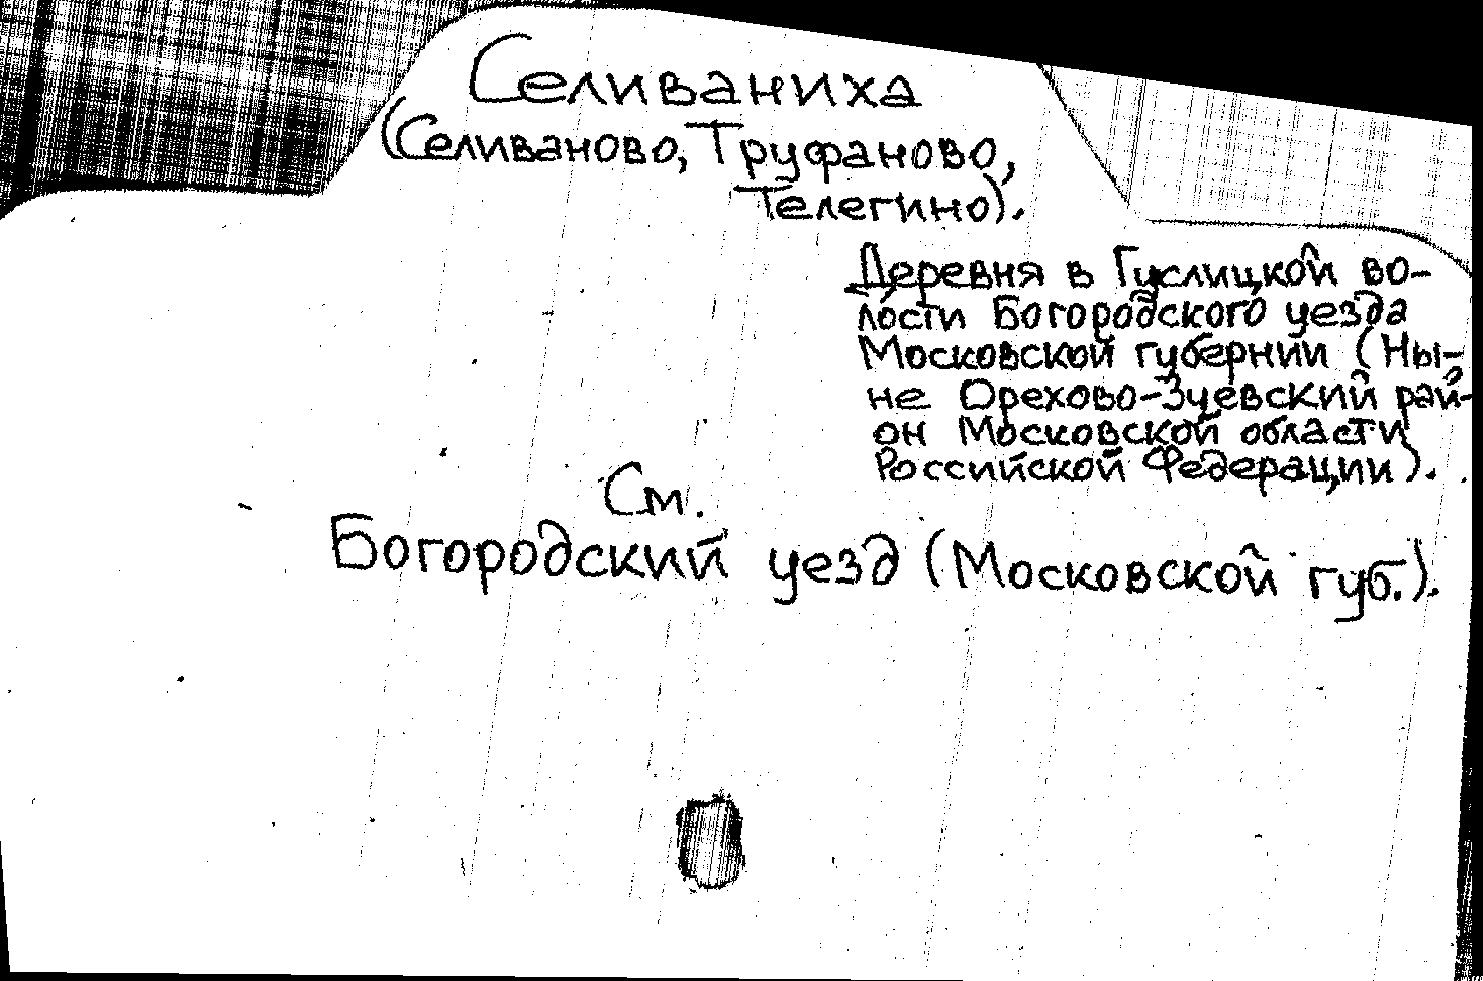 Селиваниха
(Селиваново, Труфаново,
Телегино).
Деревня в Гуслицкой во-
лости Богородского уезда
Московской губернии (Ны-
не Орехово-Зуевский рай-
он Московской области
Российской Федерации).
См.
Богородский уезд (Московской губ.).